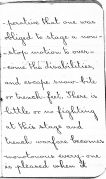 perative that one was
obliged to stage a non-
stop motion to over-
come the disabilities,
and escape snow-bite
or trench-feet. There is
little or no fighting
at this stage and
trench warfare becomes
monotonous every-one
is pleased when it